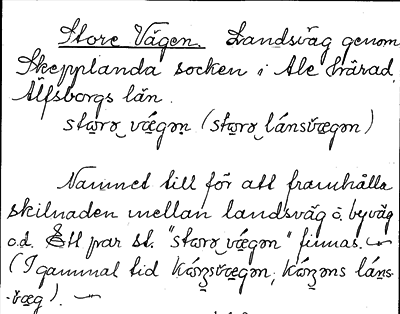 Store Vägen. Landsväg genom
Skepplanda socken i Ale härad,
Älfsborgs län.
stɷrə vǽgən (stɷrə lánsvægən)
Namnet till för att framhålla
skilnaden mellan landsväg o. byväg
o.d. Ett par st. "stɷrə vǽgən" finnas.
(I gammal tid